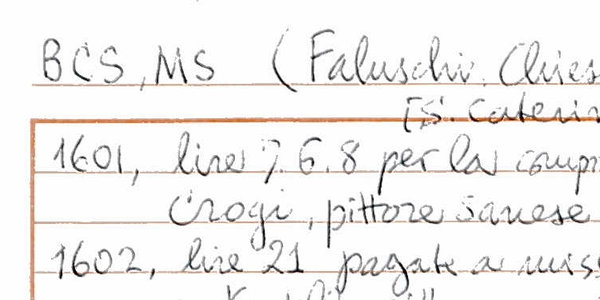 BCS, MS (Faluschi. Chies
[S. Caterin
1601, lire 7.6.8 per la comp
Crogi, pittore sanese
1602, lire 21 pagate a miss